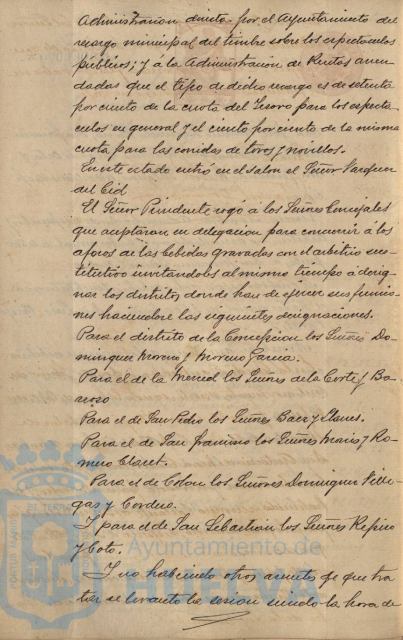 Administracion directa por el Ayuntamiento del
recargo municipal del timbre sobre los espectaculos
públicos; y á la Administracion de Rentas arren-
dadas que el tipo de dicho recargo es de setenta
por ciento de la cuota del Tesoro para los especta-
culos en general y el ciento por ciento de la misma
cuota para las corridas de toros y novillos.
En este estado entró en el salon el Señor Vazquez
del Cid
El Señor Presidente rogó á los Señores Concejales
que aceptaran su delegacion para concurrir á los
aforos de las bebidas gravadas con el arbitrio sus-
titutivo invitandoles al mismo tiempo á desig-
nar los distritos donde han de ejercer sus funcio-
nes haciendose las siguientes designaciones.
Para el distrito de la Concepcion los Señores Do-
minguez Moreno y Moreno Garcia.
Para el de la Merced los Señores de la Corte y Ba-
rroso
Para el de San Pedro los Señores Baez y
Para el de San Francisco los Señores y Ro-
mero Claret.
Para el de Colon los Señores Dominguez Ville-
gas y Cordero.
Y para el de San Sebastian los Señores
y Coto.
Y no habiendo otros asuntos de que tra-
tar se levantó la sesion siendo la hora de
Ayuntamiento de
HUELVA